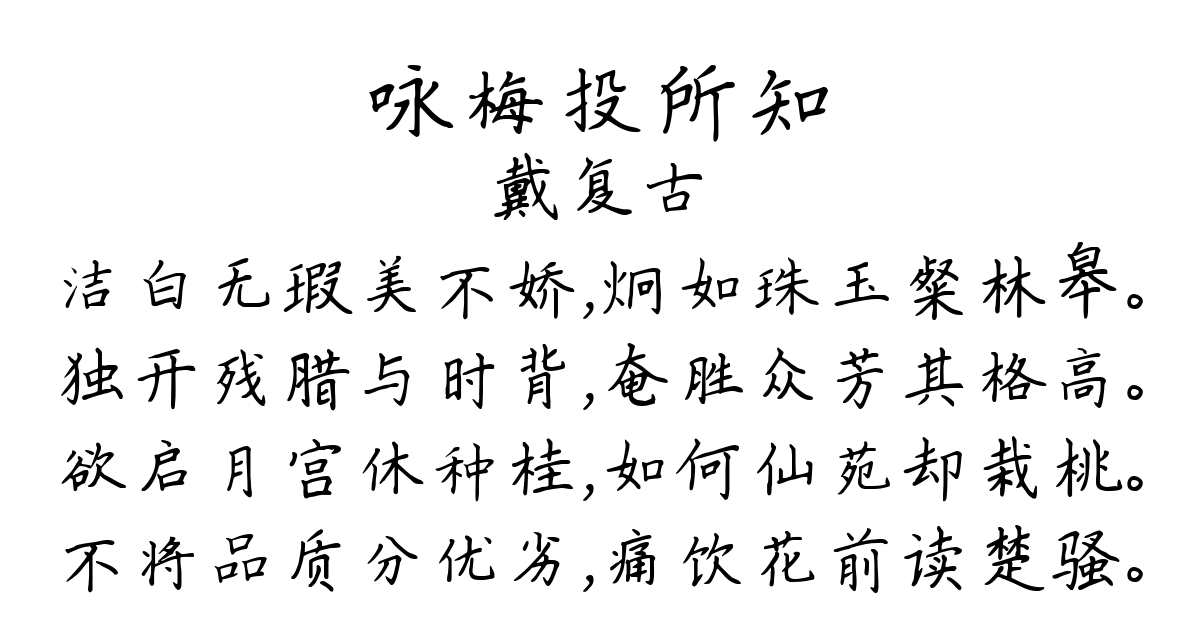 咏梅投所知
戴复古
洁白无瑕美不娇,炯如珠玉粲林皋。
独开残腊与时背,奄胜众芳其格高。
欲启月宫休种桂,如何仙苑却栽桃。
不将品质分优劣,痛饮花前读楚骚。